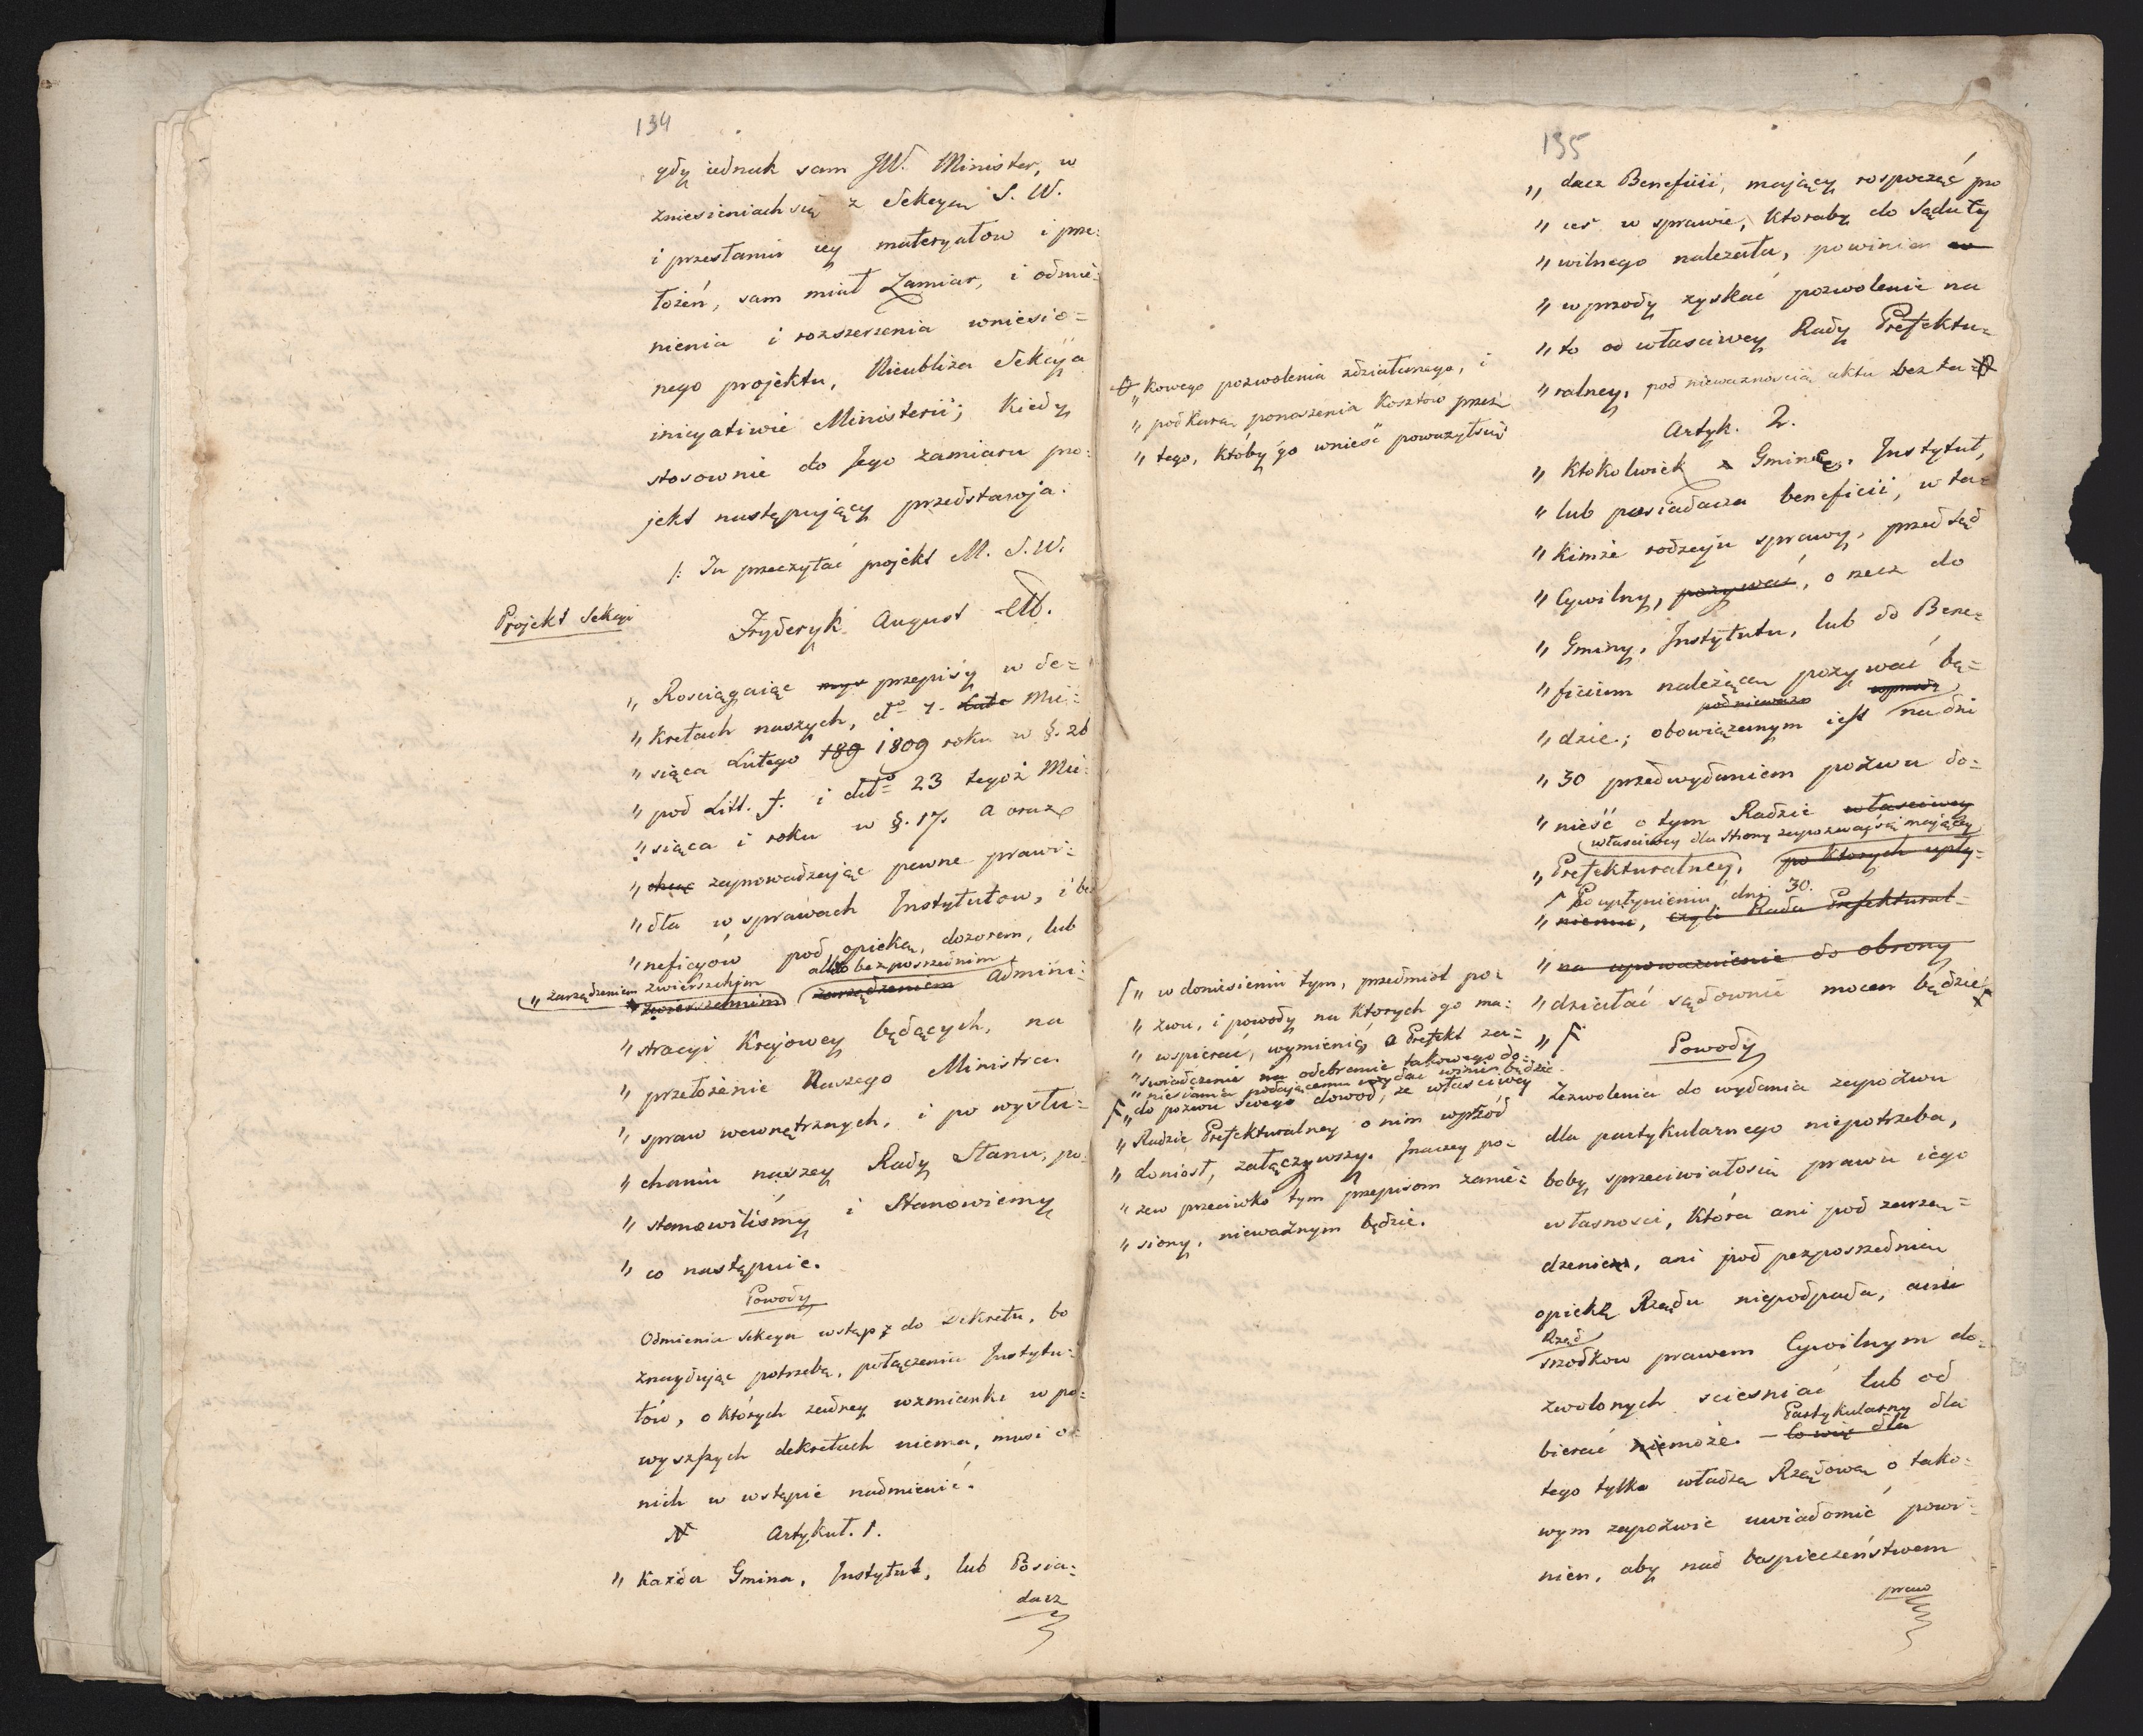 134
gdy iednak sam JW. Minister, w
zniesieniach się z Sekcyą S. W.
i przesłaniu iey materyałow i prze:
łożeń, sam miał Zamiar, i odmie:
nienia i rozszerzenia wniesio=
nego projektu, Nieubliża Sekcyja
inicyatiwie Ministerii; Kiedy
stosownie do Jego zamiaru pro:
jekt następujący przedstawja.
/: Tu przeczytać projekt M. S. W.
Projekt Sekcyi
Fryderyk August etc.
„ Rosciągaiąc przepisy w de=
„ kretach naszych, dto 7. Luta Mie:
„ siąca Lutego 189 1809 roku w §. 26
„ pod Litt. f. i dto 23 tegoż Mie:
„ siąca i roku w §. 17. a oraz
„ chcąc zaprowadzając pewne prawi:
„ dła w sprawach Instytutow, i be
„ neficyów pod opieką, dozorem, lub
albo bezpośrzednim
„ zarządzeniem zwierzchim
zwierzchnim zarządzeniem Admini:
„ stracyi Krajowey będących, na
„ przełożenie Naszego Ministra
„ spraw wewnętrznych, i po wysłu=
„ chaniu naszey Rady Stanu, po
„ stanowiliśmy i Stanowiemy
„ co następuie.
Powody
Odmienia Sekcya wstęp do Dekretu, bo
znayduiąc potrzebą, połączenia Instytu:
tów, o których żadney wzmianki w po:
wyszszych dekretach niema, musi o
nich w wstępie nadmienić.
Artykuł. 1.
„ Każda Gmina, Instytut, lub Posia:
dacz
135
„ dacz Beneficii, mający rospocząć pro
„ ces w sprawie, ktoraby do Sądu Cy
„ wilnego należała, powinien w
„ wprzody zyskać pozwolenie na
„ to od właściwey Rady Prefektu=
„ ralney, pod nieważnością aktu bez ta=
„ kowego pozwolenia zdziałanego, i
„ pod karą ponoszenia kosztow przez
„ tego, któby go wnieść poważył się
Artyk. 2.
„ Ktokolwiek Gminę, Instytut,
„ lub posiadacza beneficii, w ta=
„ kimże rodzaju sprawy, przed Sąd
„ Cywilny, pozywać, o rzecz do
„ Gminy, Instytutu, lub do Bene=
„ ficium należącą pozywać bę=
pod nieważn wprzody
„ dzie; obowiązanym iest na dni
„ 30 przed wydaniem pożwu do=
„ nieść o tym Radzie właściwey
właściwey dla strony zapozwać się mającey
„ Prefekturalney, po których upły=
Po upłynieniu dni 30.
„ nieniu, czyli Rada Prefektural=
„ na upoważnienie do obrony
„ działać sądownie mocen będzie
„ F
F „ w doniesieniu tym, przedmiot po=
„ zwu, i powody na ktorych go ma:
„ wspierać, wymienić, a Prefekt za=
„ swiadczenie na odebranie takowego do=
„ niesienia podającemu wydać winien będzie
F „ do pozwu swego dowod, że właściwey
„ Radzie Prefekturalney o nim wprzód
„ doniosł, załączywszy. Inaczey po=
„ zew przeciwko tym przepisom zanie=
„ siony, nieważnym będzie.
Powody
Zezwolenia do wydania zapozwu
dla partykularnego niepotrzeba,
boby sprzeciwiałosię prawu iego
własności, która ani pod zarzą=
dzenie, ani pod pezposrzednią
opiekę Rządu niepodpada, ani
Rząd
srzodkow prawem Cywilnym do=
zwolonych sciesniać lub od
bierać niemoże. — Co więc dla
Partykularny dla
tego tylko władzę Rządową o tako=
wym zapożwie uwiadomić powi=
nien, aby nad bespieczeństwem
praw